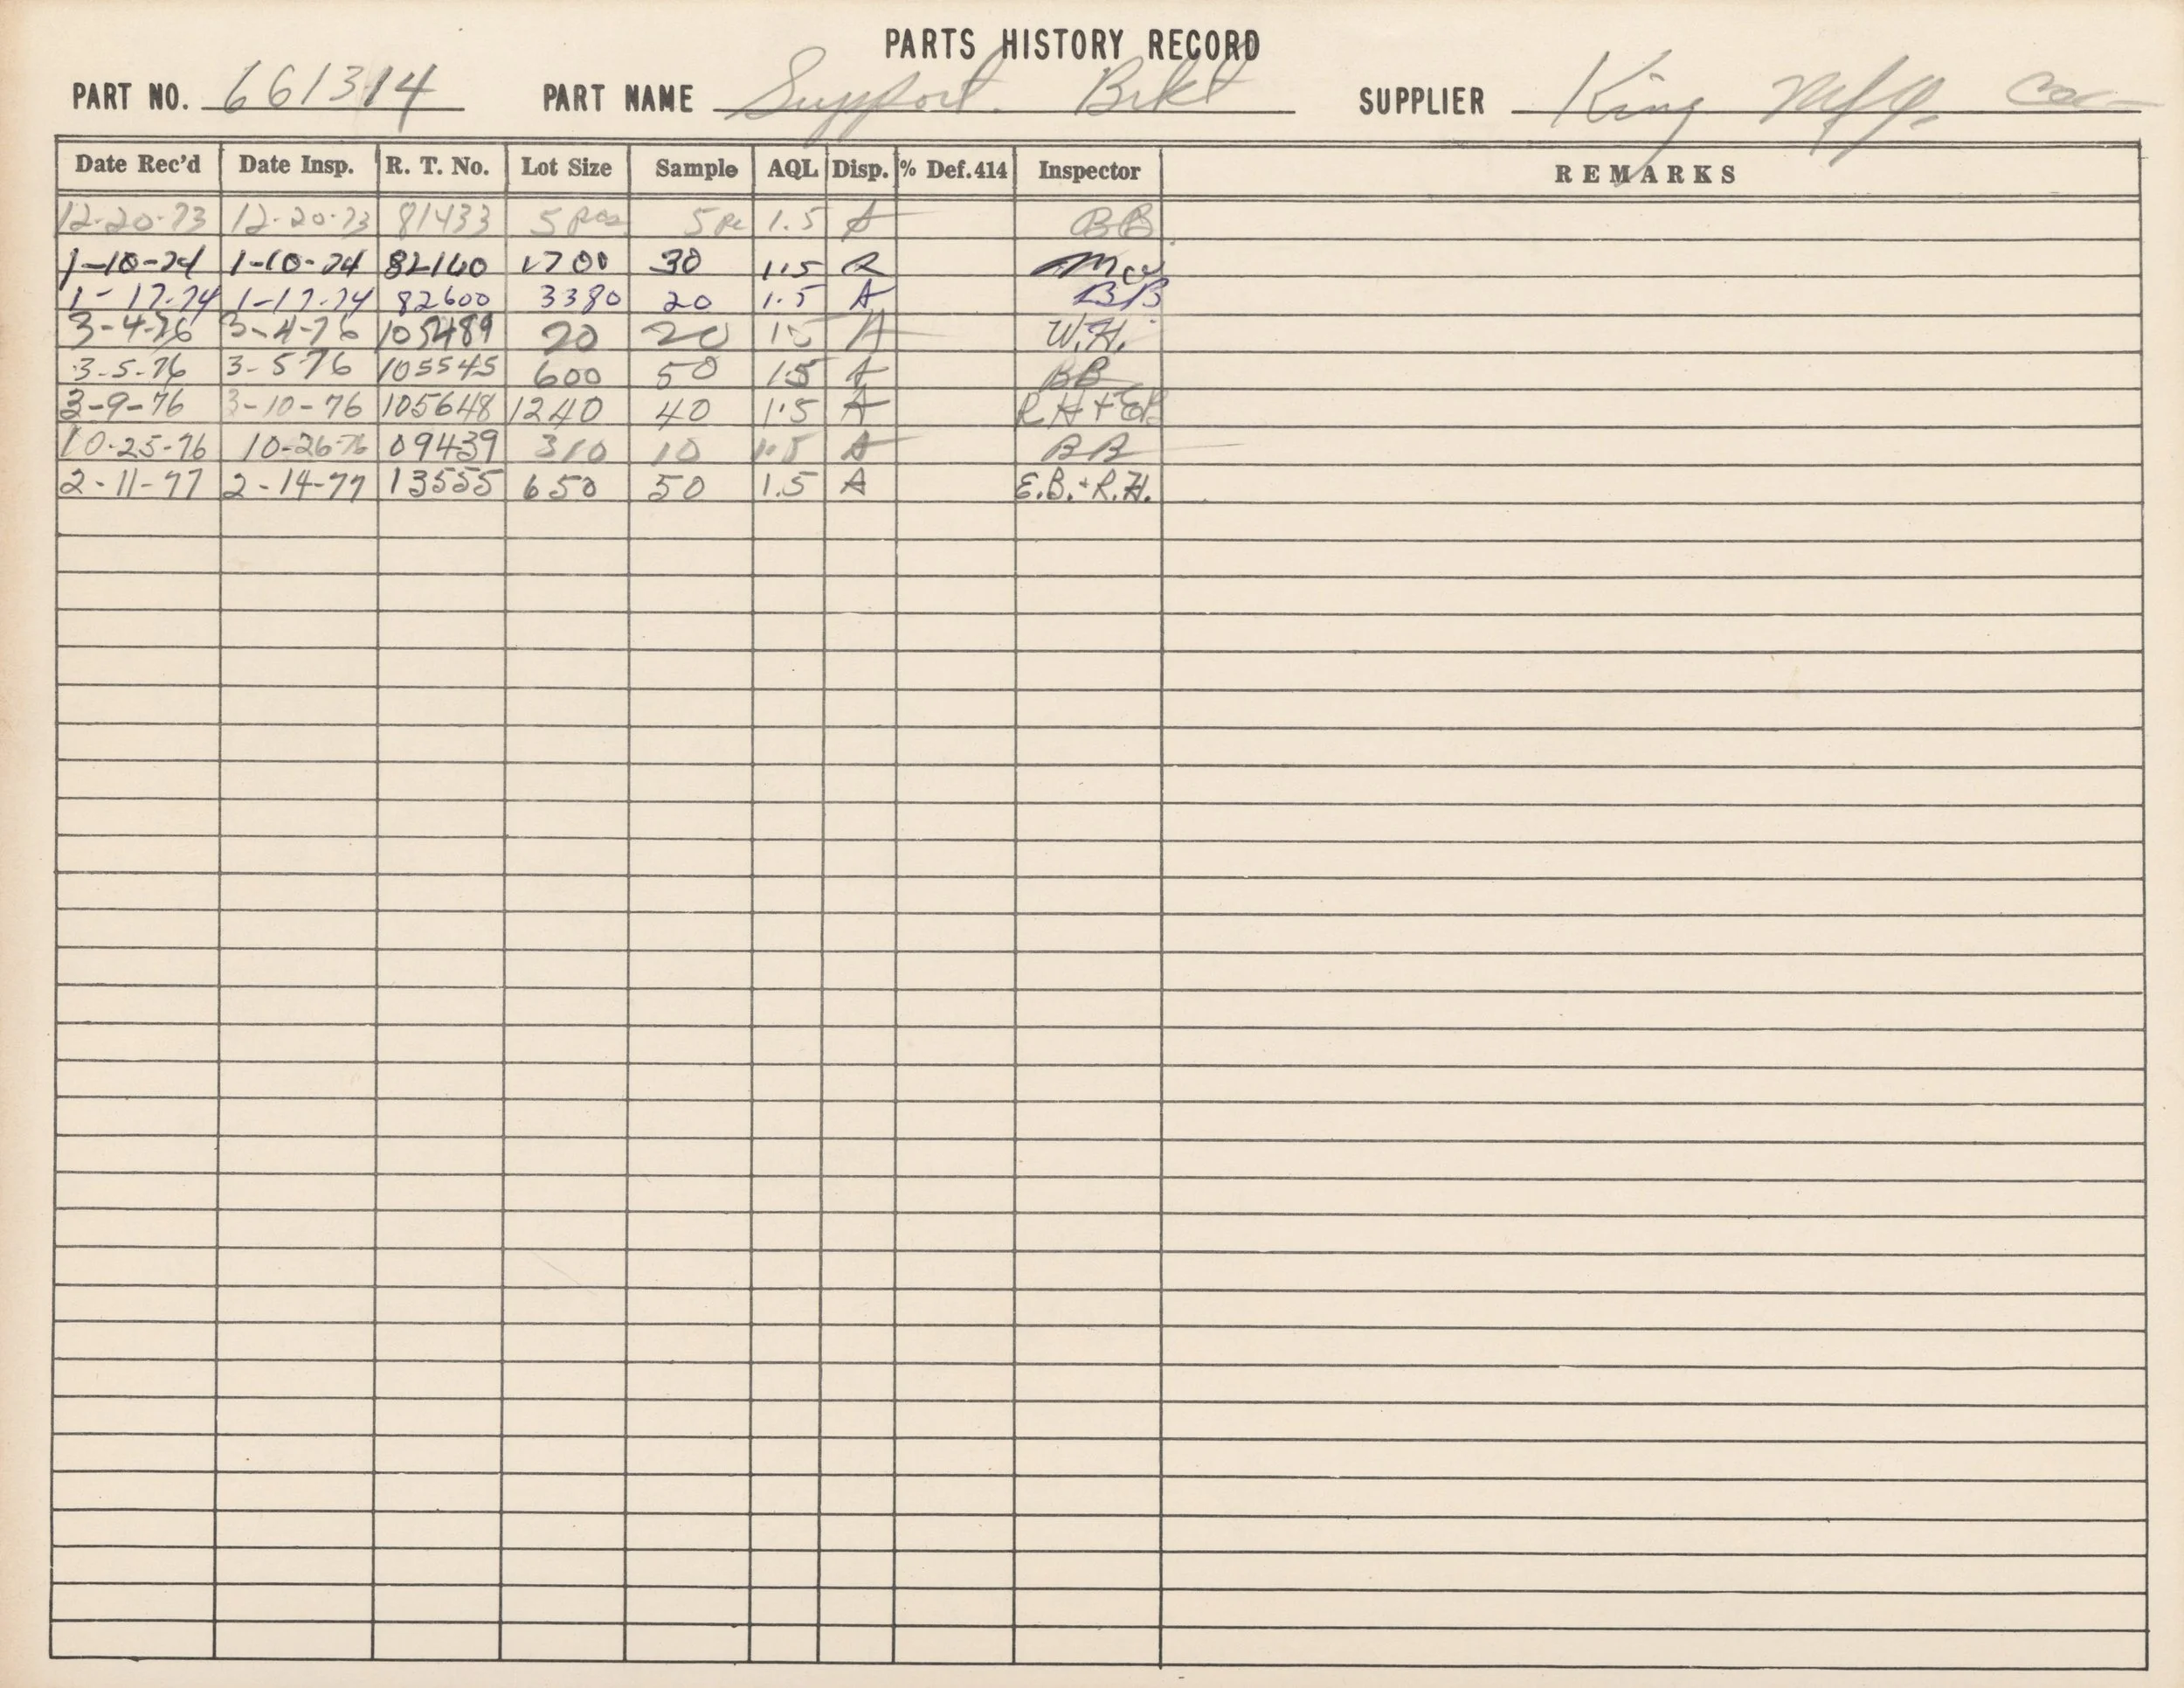 PARTS HISTORY RECORD
PART NO. 661314 PART NAME Support Brkt SUPPLIER King Mfg. Co
Date Rec'd Date Insp. R. T. No. Lot Size Sample AQL Disp. % Def.414 Inspector REMARKS
12-20-73 12-20-73 81433 5 pcs 5 pc 1.5 A BB
1-10-74 1-10-74 82140 1700 30 1.5 R
1-17-74 1-17-74 82600 3380 20 1.5 A BB
3-4-76 3-4-76 105489 20 20 15 A W.H.
3-5-76 3-5-76 105545 600 50 1.5 A BB
3-9-76 3-10-76 105648 1240 40 1.5 A RH+EB
10-25-76 10-26-76 09439 310 10 1.5 A BB
2-11-77 2-14-77 13555 650 50 1.5 A E.B.+R.H.